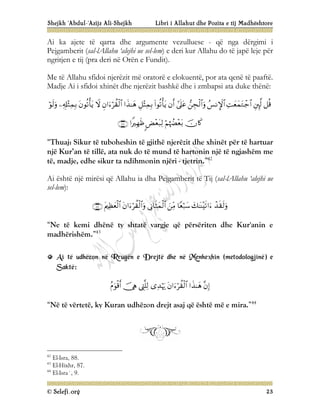 Shejkh 'Abdul-'Aziz Ali-Shejkh Libri i Allahut dhe Pozita e tij Madheshtore
Ai ka ajete të qarta dhe argumente vezulluese - që nga dërgimi i
Pejgamberit (sal-lAllahu 'alejhi ue sel-lem) e deri kur Allahu do të japë leje për
ngritjen e tij (pra deri në Orën e Fundit).
Me të Allahu sfidoi njerëzit më oratorë e elokuentë, por ata qenë të paaftë.
Madje Ai i sfidoi xhinët dhe njerëzit bashkë dhe i zmbapsi ata duke thënë:
قُل لَّئِنِ ٱجْتَمَعَتِ ٱلْإِنسُ وَٱلْجِنُّ عَلَىٰٓ أَن يَأْتُوا۟ بِمِثْلِ هَٰذَا ٱلْقُرْءَانِ لَا يَأْتُونَ بِمِثْلِهِۦ وَلَوْ
كَانَ بَعْضُهُمْ لِبَعْضٍ ظَهِيرًا ﴿٨٨﴾
"Thuaj: Sikur të tuboheshin të gjithë njerëzit dhe xhinët për të hartuar
një Kur'an si të tillë, ata nuk do të mund të hartonin një të ngjashëm me
të, madje, edhe sikur ta ndihmonin njëri - tjetrin."82
Ai është një mirësi që Allahu ia dha Pejgamberit të Tij (sal-lAllahu 'alejhi ue
sel-lem):
وَلَقَدْ ءَاتَيْنَٰكَ سَبْعًا مِّنَ ٱلْمَثَانِى وَٱلْقُرْءَانَ ٱلْعَظِيمَ ﴿٨٧﴾
"Ne të kemi dhënë ty shtatë vargje që përsëriten dhe Kur'anin e
madhërishëm."83
Ai të udhëzon në Rrugën e Drejtë dhe në Menhexhin (metodologjinë) e
Saktë:
إِنَّ هَٰذَا ٱلْقُرْءَانَ يَهْدِى لِلَّتِى هِىَ أَقْوَمُ
"Në të vërtetë, ky Kuran udhëzon drejt asaj që është më e mira."84
82 El-Isra, 88.
83 El-Hixhr, 87.
84 El-Isra', 9.
© Selefi.org 23